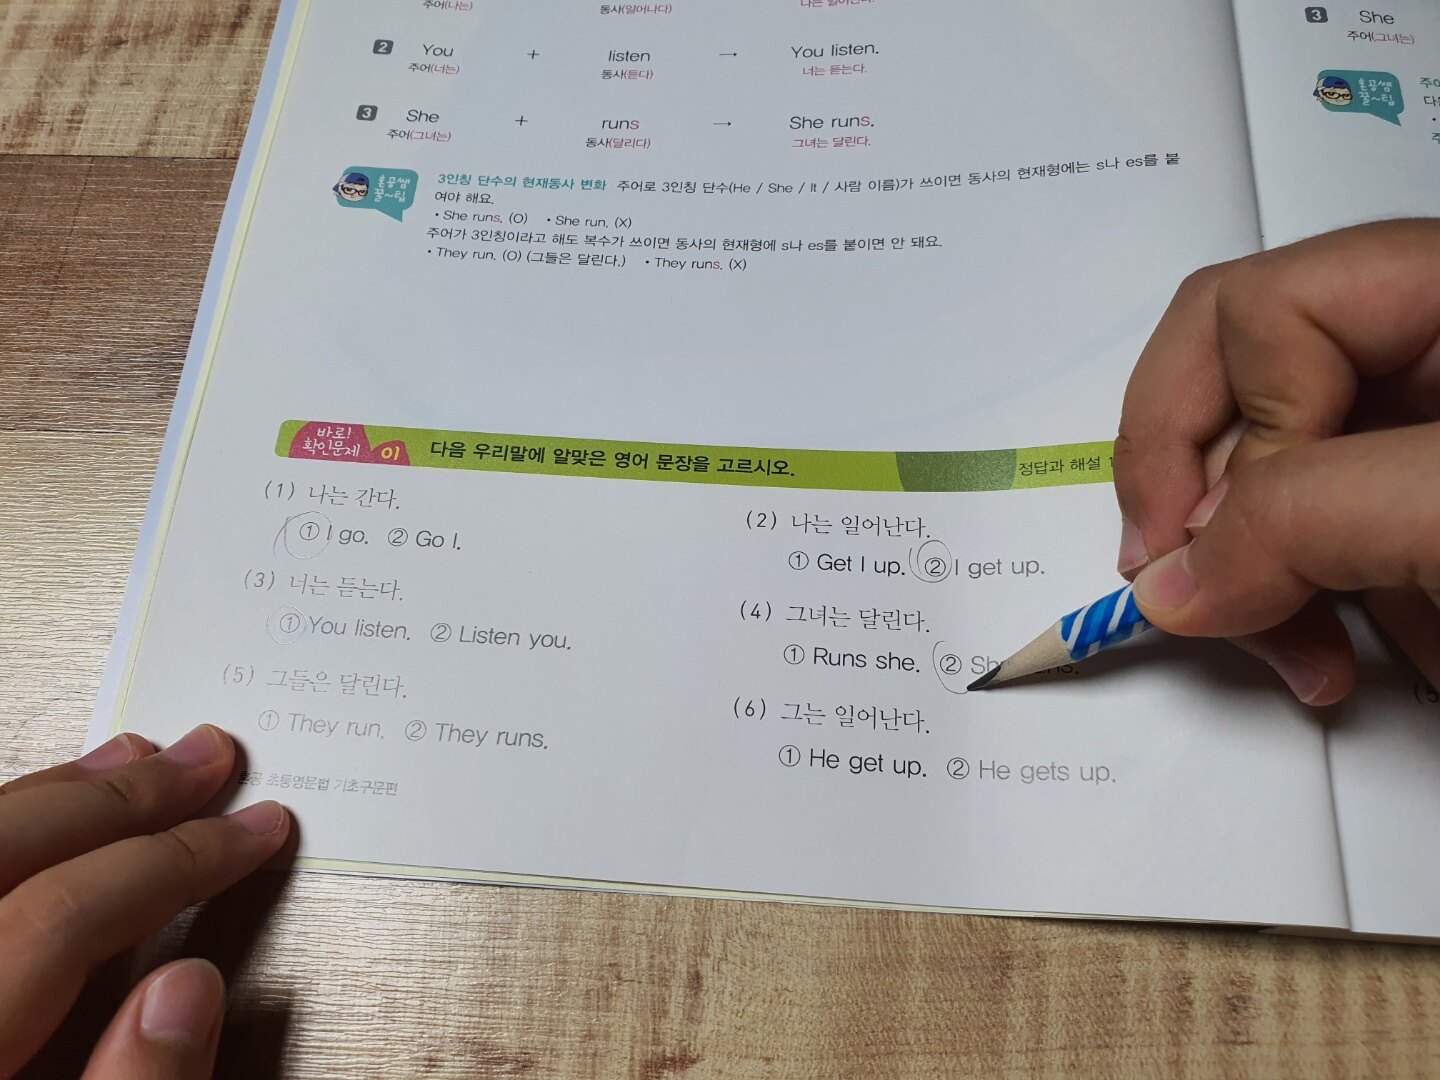 주어(나는) 동사(일어나다) 나는 일어난다.
2 You + listen → You listen.
주어(너는) 동사(듣다) 너는 듣는다.
3 She + runs → She runs.
주어(그녀는) 동사(달리다) 그녀는 달린다.
혼공쌤
꿀~팁
3인칭 단수의 현재동사 변화 주어로 3인칭 단수(He / She / It / 사람 이름)가 쓰이면 동사의 현재형에는 s나 es를 붙
여야 해요.
• She runs. (O) • She run. (X)
주어가 3인칭이라고 해도 복수가 쓰이면 동사의 현재형에 s나 es를 붙이면 안 돼요.
• They run. (O) (그들은 달린다.) • They runs. (X)
바로!
확인문제 01 다음 우리말에 알맞은 영어 문장을 고르시오. 정답과 해설
(1) 나는 간다.
① I go. ② Go I.
(2) 나는 일어난다.
① Get I up. ② I get up.
(3) 너는 듣는다.
① You listen. ② Listen you.
(4) 그녀는 달린다.
① Runs she. ②
(5) 그들은 달린다.
① They run. ② They runs.
(6) 그는 일어난다.
① He get up. ② He gets up.
혼공 초등영문법 기초구문편
3 She
주어(그녀는)
혼공쌤
꿀~팁